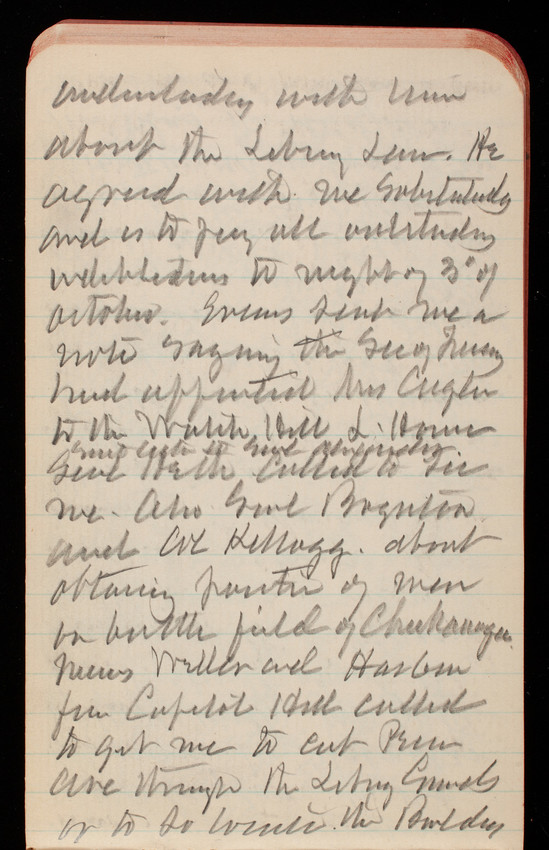 understanding with him
about the Library Law. He
agreed with me substantially
and is to pay all outstanding
indebtedness to night of 3" of
October. Evans sent me a
note saying the Sec of Treasy
had appointed Mrs
to the Watch Hill L. House
to Genl
Genl called to see
me. Also Genl Boynton
and Col Kellogg. about
obtaining of men
on battle field of Chickamauga.
Messrs Weller and
from Capitol Hill called
to get me to cut Penn
Ave through the Library Grounds
or to so locate the Building